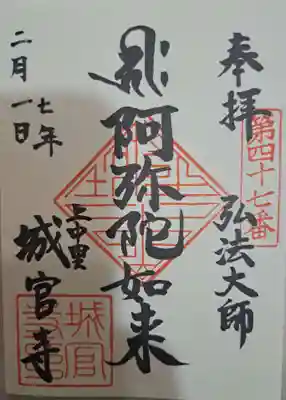 奉拝
第四十七番
弘法大師
阿弥陀如来
上中里
城官寺
七年
二月一日
城官